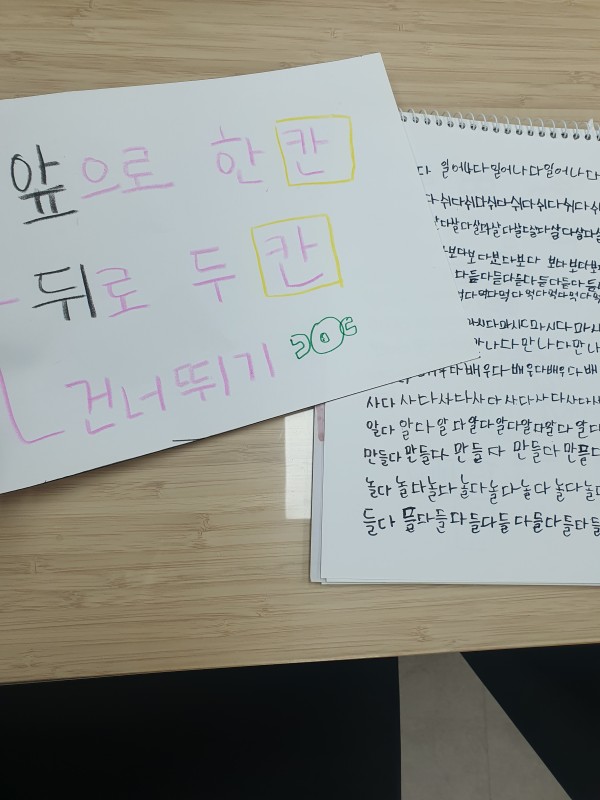 앞으로 한 칸
뒤로 두 칸
건너뛰기
다 일어나다 일어나다 일어나다
쉬다 쉬다 쉬다 쉬다 쉬다 쉬다 쉬다
살다 살다 살다 살다 살다 살다 살다
보다 보다 보다 보다 보다 보다 보다
다 듣다 듣다 듣다 듣다 듣다
먹다 먹다 먹다 먹다 먹다 먹다
마시다 마시다 마시다 마시
나다 만나다 만나
배우다 배우다 배우다 배
사다 사다 사다 사다 사다 사다 사다
알다 알다 알다 알다 알다 알다 알다
만들다 만들다 만들다 만들다 만들다
놀다 놀다 놀다 놀다 놀다 놀다 놀다 놀다
들다 들다 들다 들다 들다 들다 들다